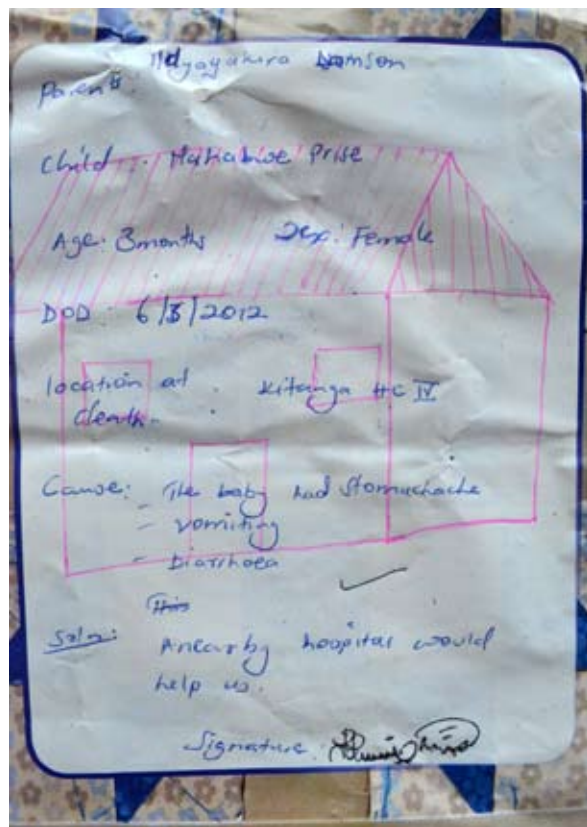 Parent:
Child :- Prise
Age: 3months Sex: Female
DOD 6/3/2012
location at Kitanga HC IV
death.
Cause: The baby had stomachache
- vomiting
- Diarrhoea
This
Soln: A nearby hospital would
help us.
Signature